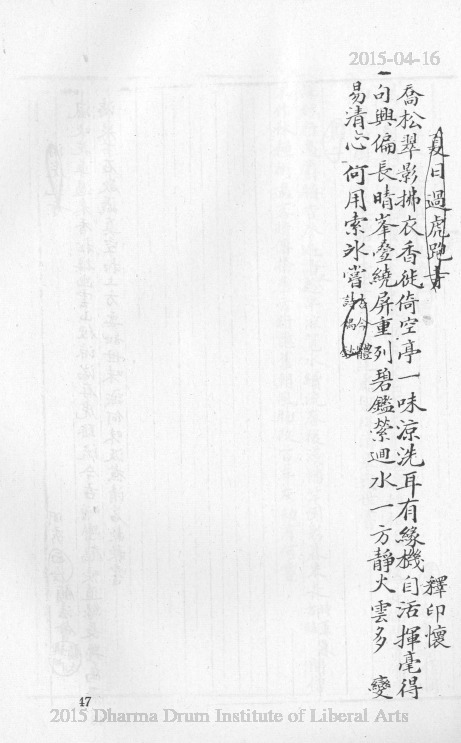 2015-04-16
夏日過虎跑寺
釋印懷
喬松翠影拂衣香徙倚空亭一味涼洗耳有緣機自活揮毫得
一句興偏長晴峯疊繞屏重列碧鑑縈迴水一方靜火雲多 變
易清心何用索氷嘗
古今體
詩偶鈔
47
2015 Dharma Drum Institute of Liberal Arts